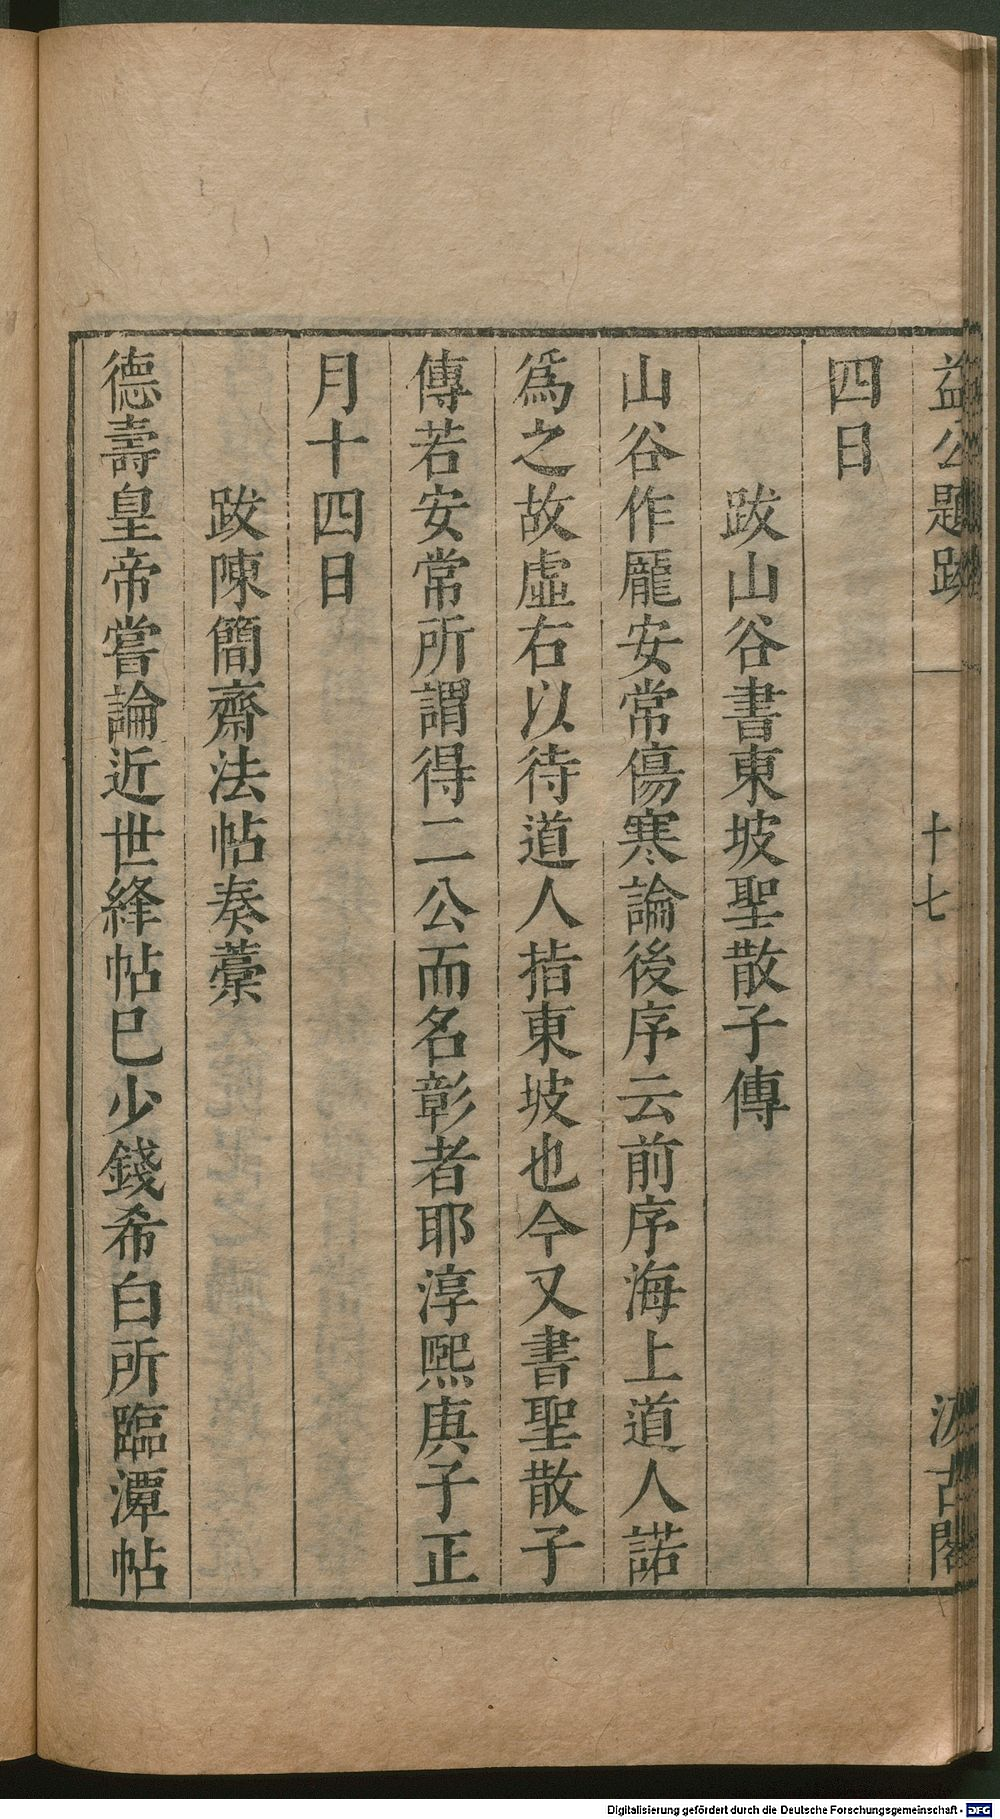 益公題跋 十七 汲古閣
四日
跋山谷書東坡聖散子傳
山谷作龐安常傷寒論後序云前序海上道人諾
爲之故虛右以待道人指東坡也今又書聖散子
傳若安常所謂得二公而名彰者耶淳熙庚子正
月十四日
跋陳簡齋法帖奏藁
德壽皇帝嘗論近世絳帖已少錢希白所臨潭帖
Digitalisierung gefördert durch die Deutsche Forschungsgemeinschaft - DFG